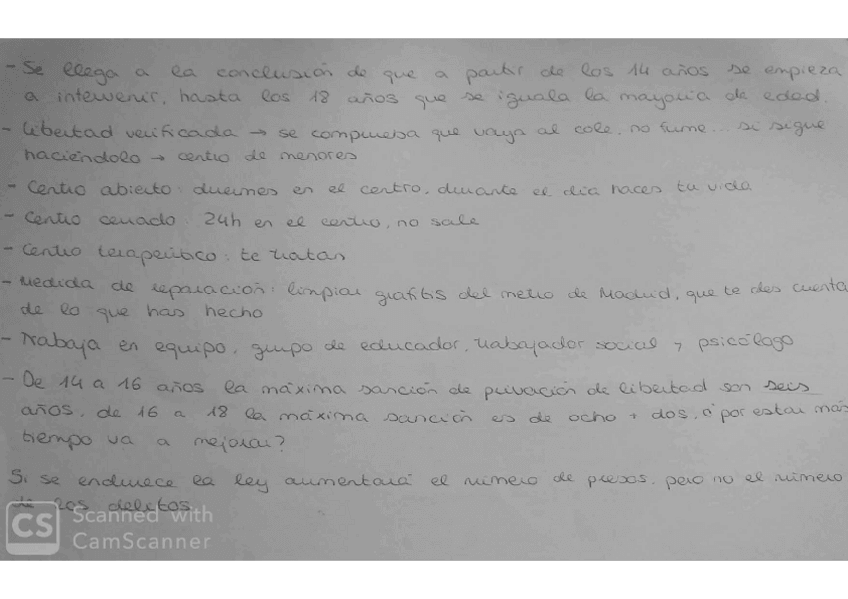 - Se llega a la conclusión de que a partir de los 14 años se empieza
a intervenir, hasta los 18 años que se iguala la mayoria de edad.
- Libertad verificada → se comprueba que vaya al cole, no fume... si sigue
haciéndolo → centro de menores
- Centro abierto: duermes en el centro, durante el dia haces tu vida
- Centro cerrado: 24h en el centro, no sale
- Centro terapéutico: te tratan
- Medida de reparación: limpiar grafitis del metro de Madrid, que te des cuenta
de lo que has hecho
- Trabaja en equipo, grupo de educador, trabajador social y psicólogo
- De 14 a 16 años la máxima sanción de privación de libertad son seis
años, de 16 a 18 la máxima sanción es de ocho + dos, ¿por estar más
tiempo va a mejorar?
Si se endurece la ley aumentará el número de presos, pero no el número
de los delitos.
CS Scanned with
CamScanner